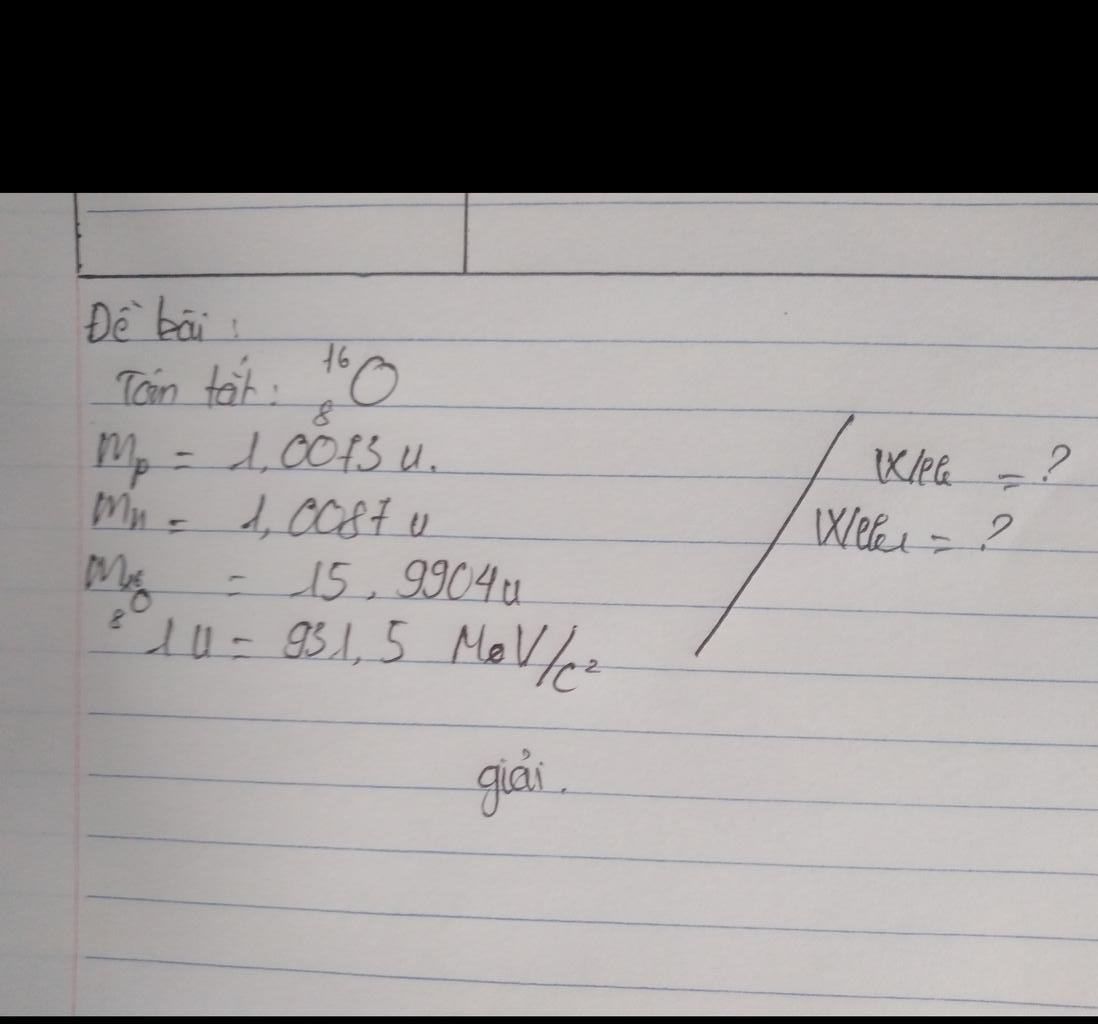 Đề bài :
Tóm tắt : ¹⁶₈O
mp = 1,0073 u.
mn = 1,0087 u
m₈O = 15,9904u
1 u = 931,5 MeV/c²
Wlk = ?
Wlkr = ?
giải.